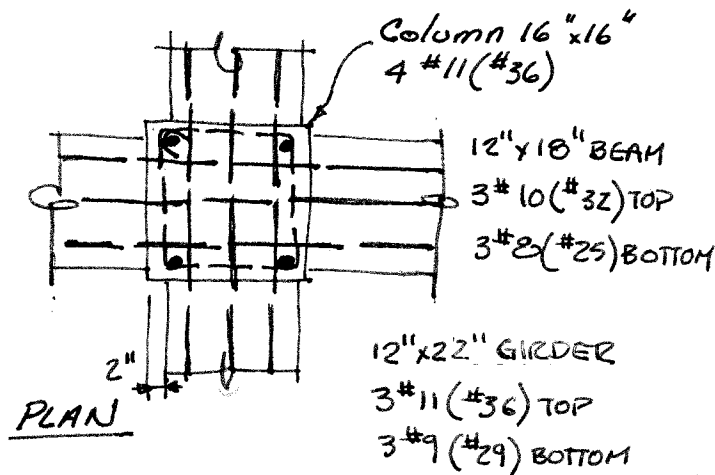 Column 16"x16"
4 #11(#36)
12"x18" BEAM
3#10(#32) TOP
3#8(#25) BOTTOM
12"x22" GIRDER
3#11(#36) TOP
3#9(#29) BOTTOM
2"
PLAN